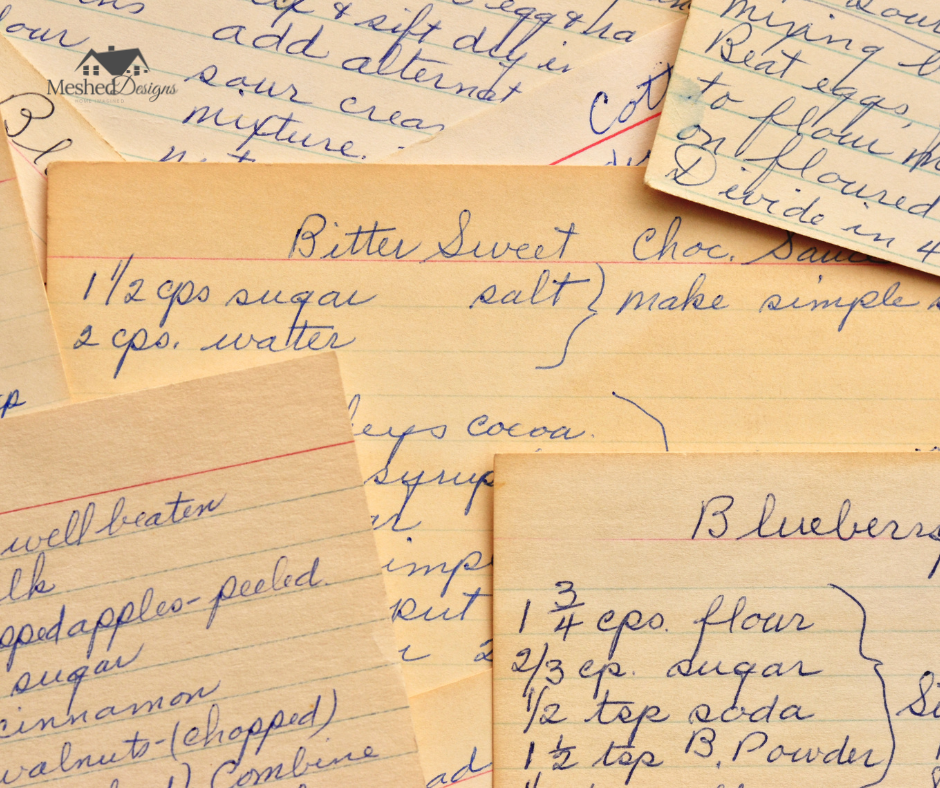 Meshed Designs
HOME INSPIRED
& sift dry in
add alternat
sour crea
mixture.
egg & ha
our
Bl
Cott
mixing
Beat eggs,
to flour
on floured
Divide in 4
Bitter Sweet Choc. Sauce
1 1/2 cps sugar salt } make simple s
2 cps. watter
eys cocoa.
syrup
imple
put
2
ad
well beaten
lk
pped apples-peeled.
sugar
cinnamon
walnuts-(chopped)
Combine
Blueberry
1 3/4 cps. flour
2/3 cp. sugar
1/2 tsp soda
1 1/2 tsp B. Powder